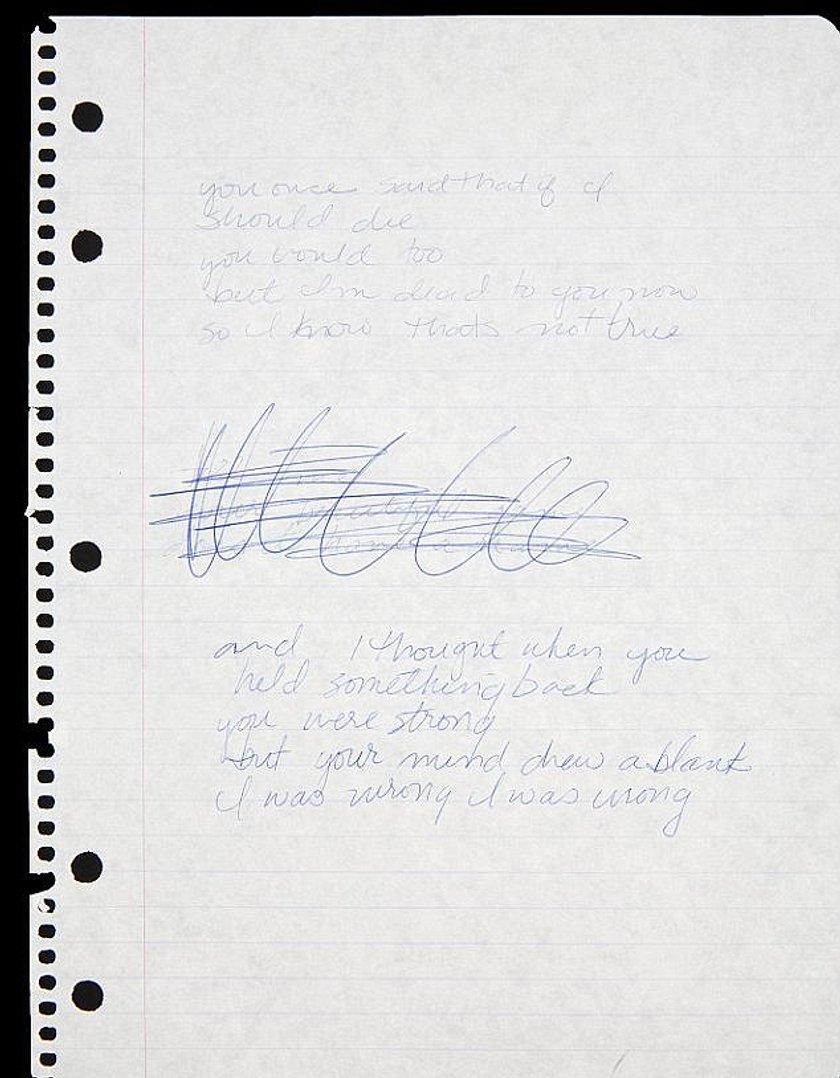 you once said that if I
should die
you would too
but Im dead to you now
so I know thats not true
and I thought when you
held something back
you were strong
but your mind drew a blank
I was wrong I was wrong